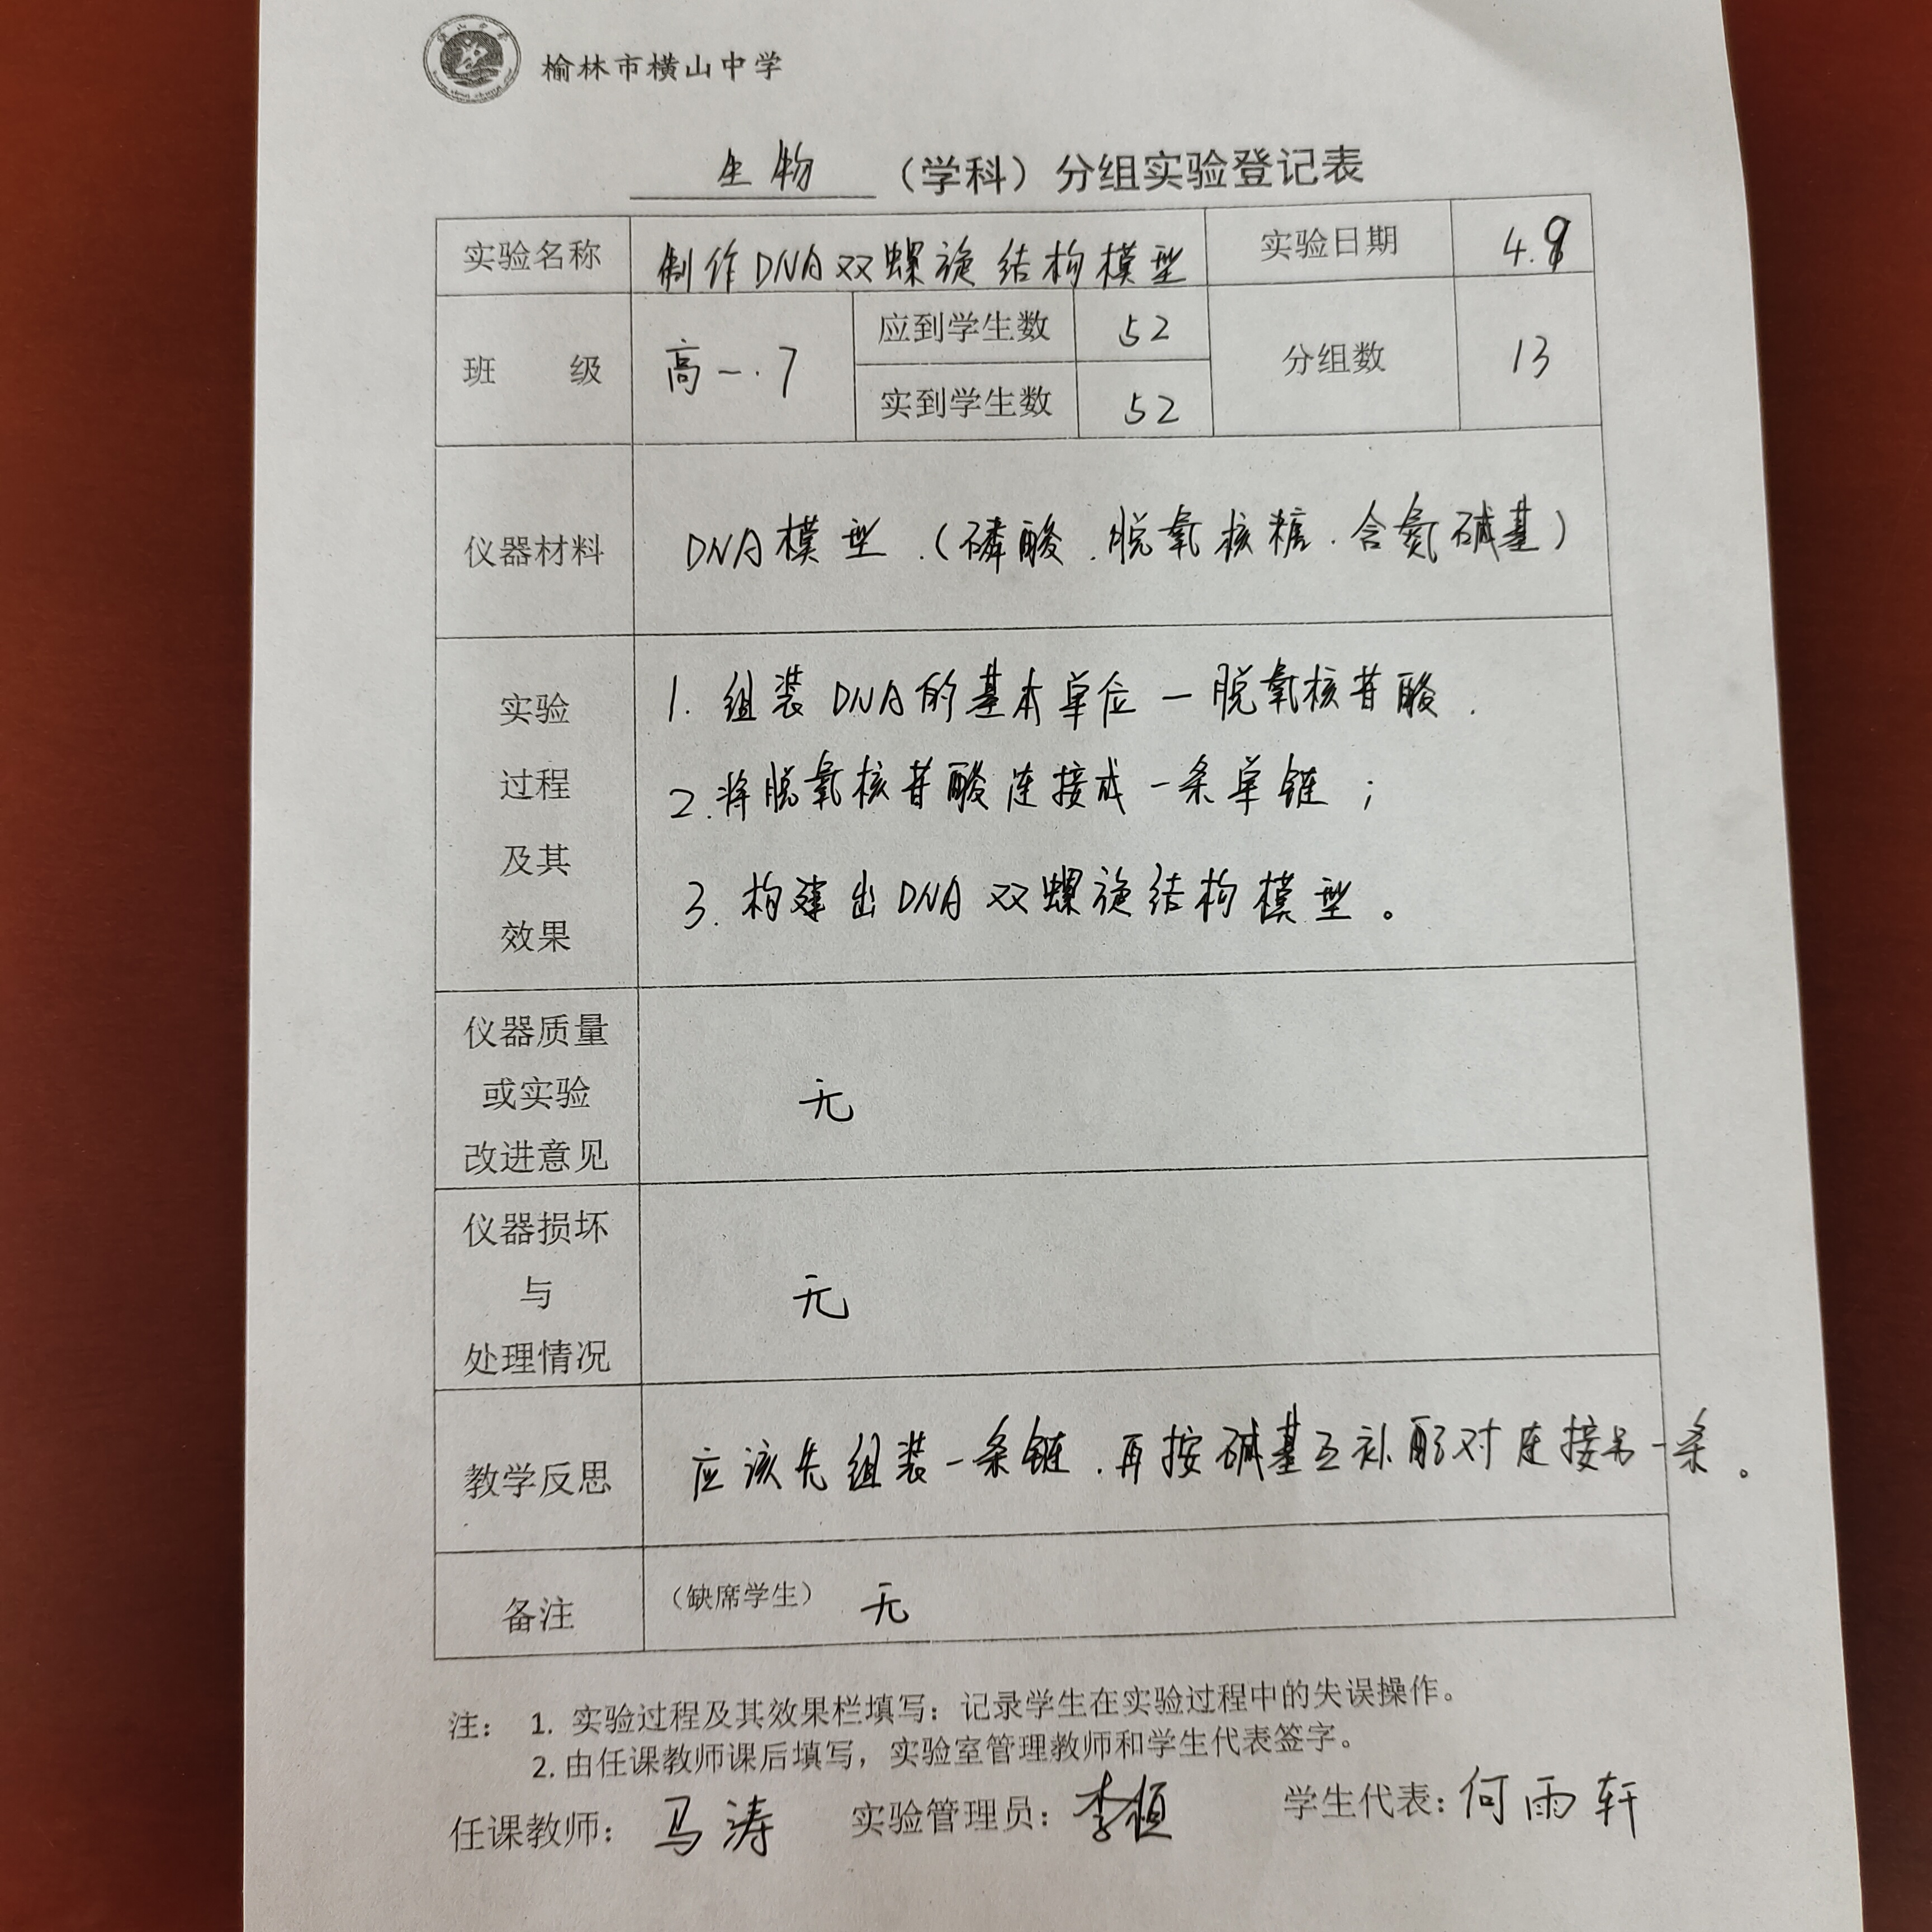 榆林市横山中学
生物（学科）分组实验登记表
实验名称 制作DNA双螺旋结构模型 实验日期 4.9
班 级 高一.7 应到学生数 52 分组数 13
实到学生数 52
仪器材料 DNA模型.(磷酸.脱氧核糖.含氮碱基)
实验
过程
及其
效果
1. 组装DNA的基本单位—脱氧核苷酸.
2.将脱氧核苷酸连接成一条单链；
3. 构建出DNA双螺旋结构模型。
仪器质量
或实验
改进意见
无
仪器损坏
与
处理情况
无
教学反思 应该先组装一条链.再按碱基互补配对连接另一条。
备注 （缺席学生） 无
注： 1. 实验过程及其效果栏填写：记录学生在实验过程中的失误操作。
2. 由任课教师课后填写，实验室管理教师和学生代表签字。
任课教师： 马涛 实验管理员： 李 学生代表：何雨轩